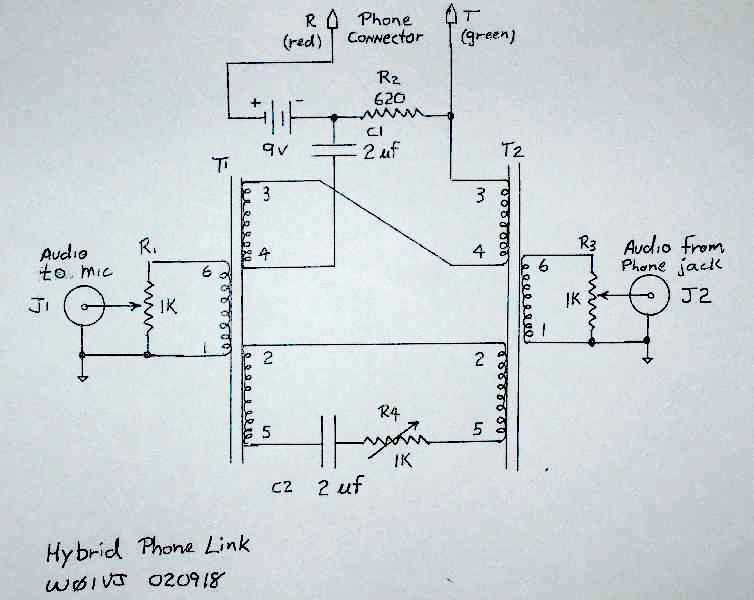 R Phone T
(red) Connector (green)
R2
620
+ -
9v
C1
2 uf
T1
T2
3
3
4
4
Audio
to mic
R1
6
J1
1K
1
R3
Audio from
Phone jack
6
1K
J2
1
2
2
R4
5
5
1K
C2 2 uf
Hybrid Phone Link
WØ1VJ 020918